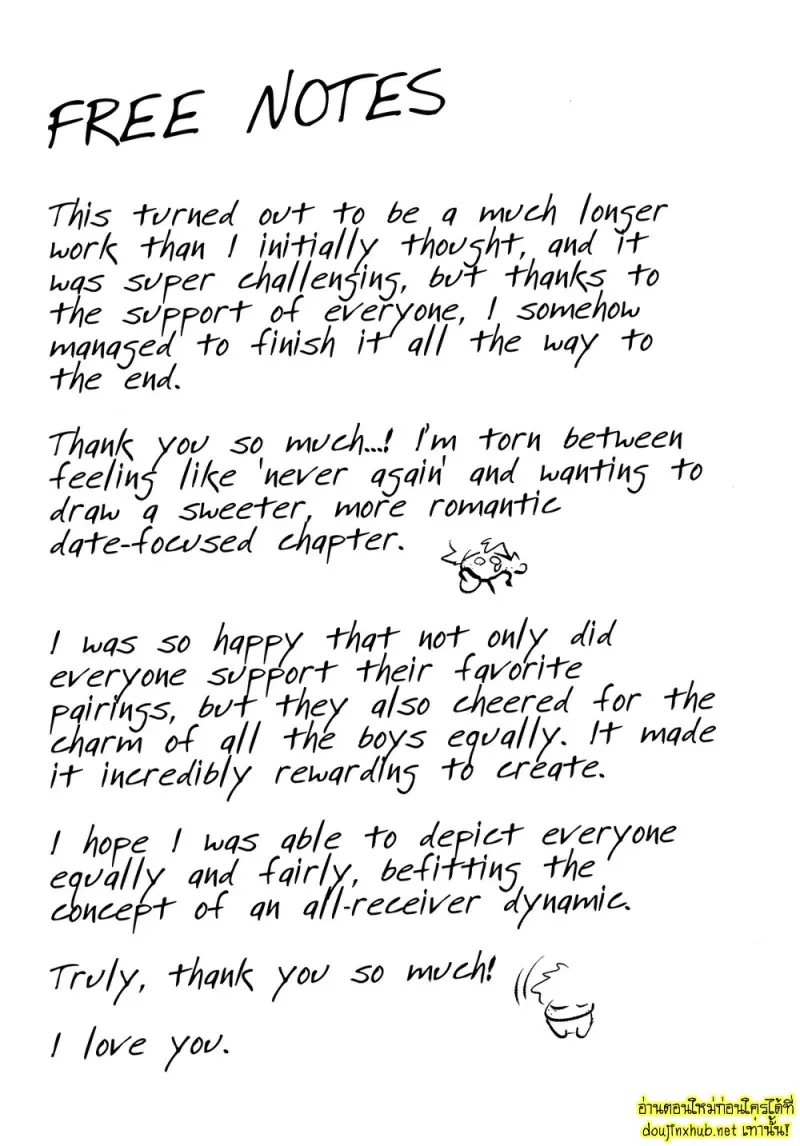 FREE NOTES
This turned out to be a much longer
work than I initially thought, and it
was super challenging, but thanks to
the support of everyone, I somehow
managed to finish it all the way to
the end.
Thank you so much...! I'm torn between
feeling like 'never again' and wanting to
draw a sweeter, more romantic
date-focused chapter.
I was so happy that not only did
everyone support their favorite
pairings, but they also cheered for the
charm of all the boys equally. It made
it incredibly rewarding to create.
I hope I was able to depict everyone
equally and fairly, befitting the
concept of an all-receiver dynamic.
Truly, thank you so much!
I love you.
อ่านตอนใหม่ก่อนใครได้ที่
doujinxhub.net เท่านั้น!